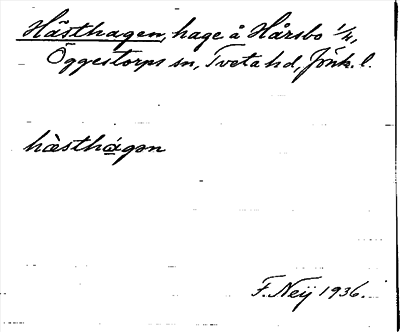 Hästhagen, hage å Hårsbo 1/4,
Öggestorps sn, Tveta hd, Jönk. l.
hàsthágən
F. Neij 1936.